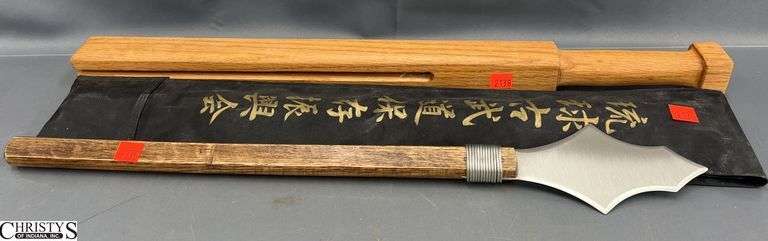 琉球古武道保存振興会
2139
CHRISTY'S
OF INDIANA, INC.